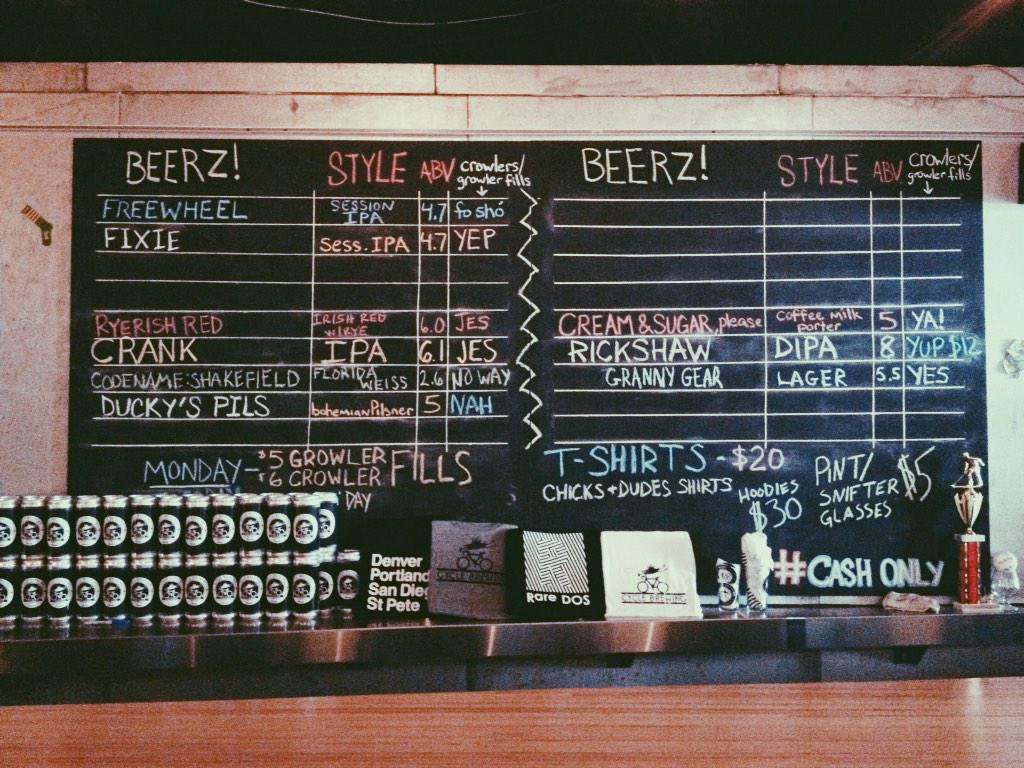 BEERZ! STYLE ABV crowlers/
growler fills
FREEWHEEL SESSION IPA 4.7 fo shó
FIXIE Sess. IPA 4.7 YEP
RYERISH RED IRISH RED W/RYE 6.0 JES
CRANK IPA 6.1 JES
CODENAME:SHAKEFIELD FLORIDA WEISS 2.6 NO WAY
DUCKY'S PILS bohemian Pilsner 5 NAH
MONDAY- $5 GROWLER FILLS
$6 CROWLER
DAY
BEERZ! STYLE ABV crowlers/
growler fills
CREAM & SUGAR, please Coffee milk porter 5 YA!
RICKSHAW DIPA 8 YUP $12
GRANNY GEAR LAGER 5.5 YES
T-SHIRTS - $20
CHICKS + DUDES SHIRTS
HOODIES
$30
PINT/
SNIFTER
GLASSES
$5
#CASH ONLY
Denver
Portland
San Dieg
St Pete
CYCLE BREWING
Rare DOS
CYCLE BREWING